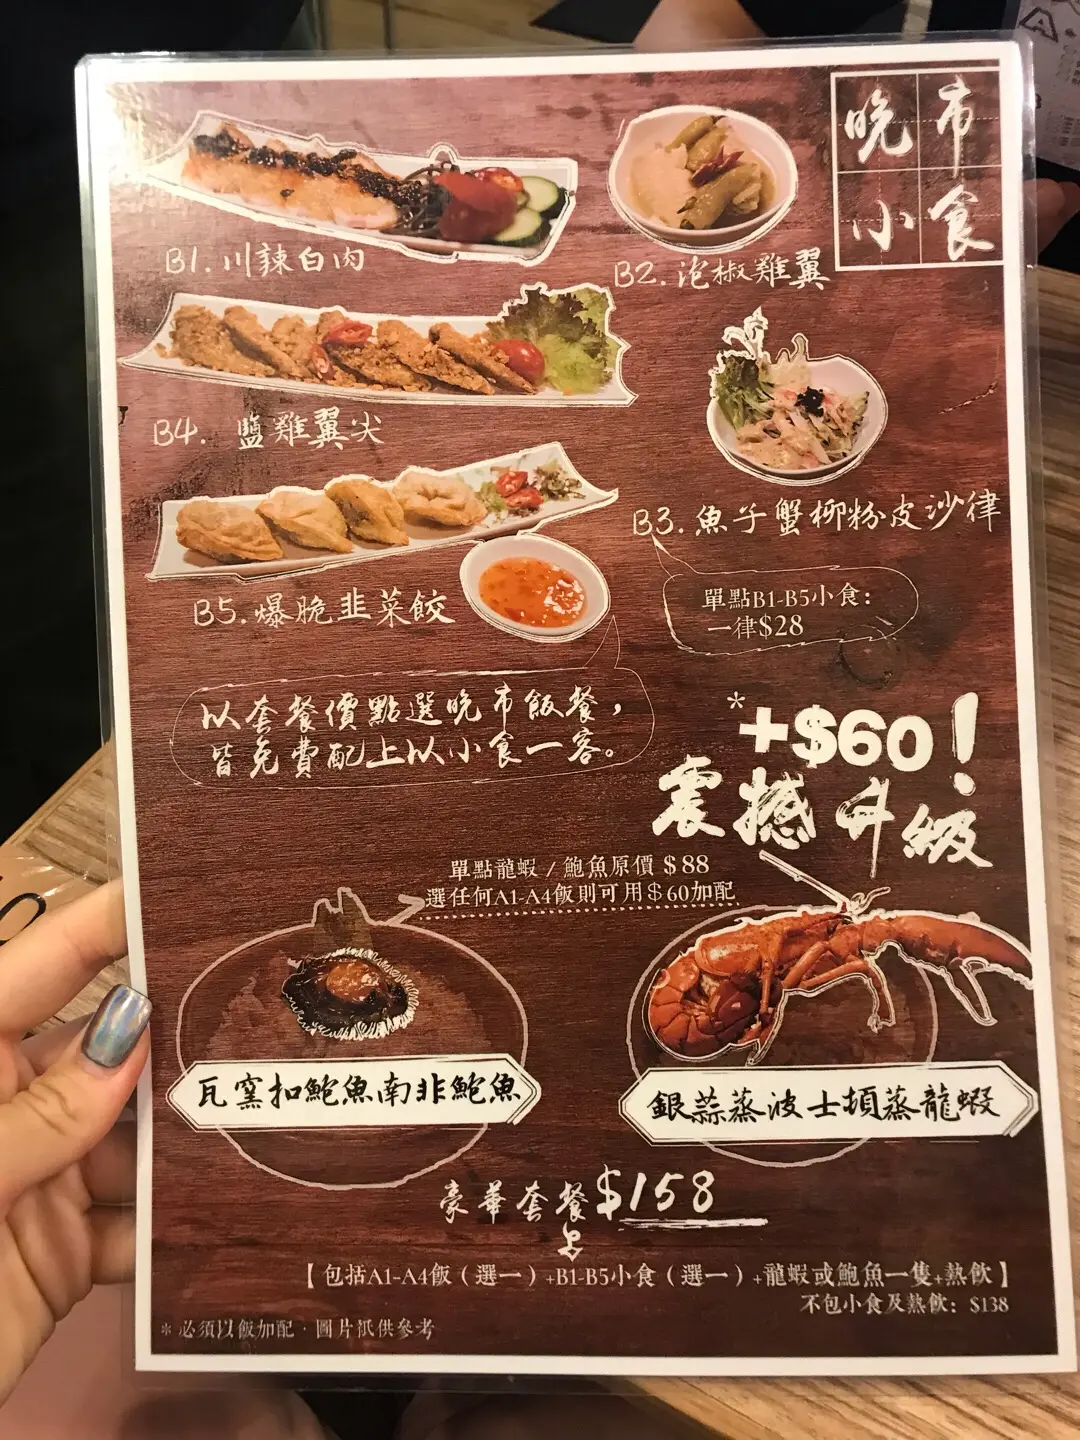 晚市
小食
B1. 川辣白肉
B2. 泡椒雞翼
B4. 鹽雞翼尖
B3. 魚子蟹柳粉皮沙律
單點B1-B5小食：
一律$28
B5. 爆脆韭菜餃
以套餐價點選晚市飯餐，
皆免費配上以小食一客。
*+$60!
震撼升級
單點龍蝦 / 鮑魚原價 $88
選任何A1-A4飯則可用$60加配
瓦窯扣鮑魚南非鮑魚
銀蒜蒸波士頓蒸龍蝦
豪華套餐$158
【包括A1-A4飯（選一）+B1-B5小食（選一）+龍蝦或鮑魚一隻+熱飲】
不包小食及熱飲：$138
*必須以飯加配 · 圖片祇供參考